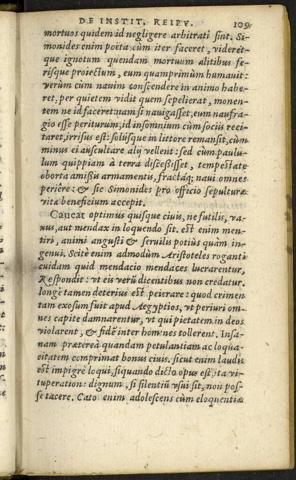 DE INSTIT. REIPV. 109
mortuos quidem id negligere arbitrati sint. Si-
monides enim poëta cùm iter faceret, videret-
que ignotum quendam mortuum alitibus fe-
risque proiectum, eum quamprimùm humauit:
verùm cùm nauim conscendere in animo habe-
ret, per quietem vidit quem sepelierat, monen-
tem ne id faceret: nam si nauigasset, eum naufra-
gio esse periturum; id insomnium cùm sociis reci-
taret, irrisus est: solúsque in littore remansit, cùm
minus ei auscultare alij vellent: sed cùm paulu-
lum quippiam à terra discessisset, tempestate
eborta amißis armamentis, fractáq; naui omnes
periêre: & sic Simonides pro officio sepulturæ
vitæ beneficium accepit.
Caueat optimus quisque ciuis, ne futilis, va-
nus, aut mendax in loquendo sit. est enim men-
tiri, animi angusti & seruilis potiùs quàm in-
genui. Scitè enim admodùm Aristoteles rogantï
cuidam quid mendacio mendaces lucrarentur,
Respondit: vt eis verũ dicentibus non credatur.
longè tamen deterius est peierare: quod crimen
tam exosum fuit apud Aegyptios, vt periuri om-
nes capite damnarentur, vt qui pietatem in deos
violarent, & fidẽ inter homines tollerent. Insa-
nam præterea quandam petulantiam ac loqua-
citatem comprimat bonus ciuis. sicut enim laudis
est impigrè loqui, siquando dicto opus est, ita vi-
tuperatione dignum, si silentiũ vsui sit, non pos-
se tacere. Cato enim adolescens cùm eloquentiæ